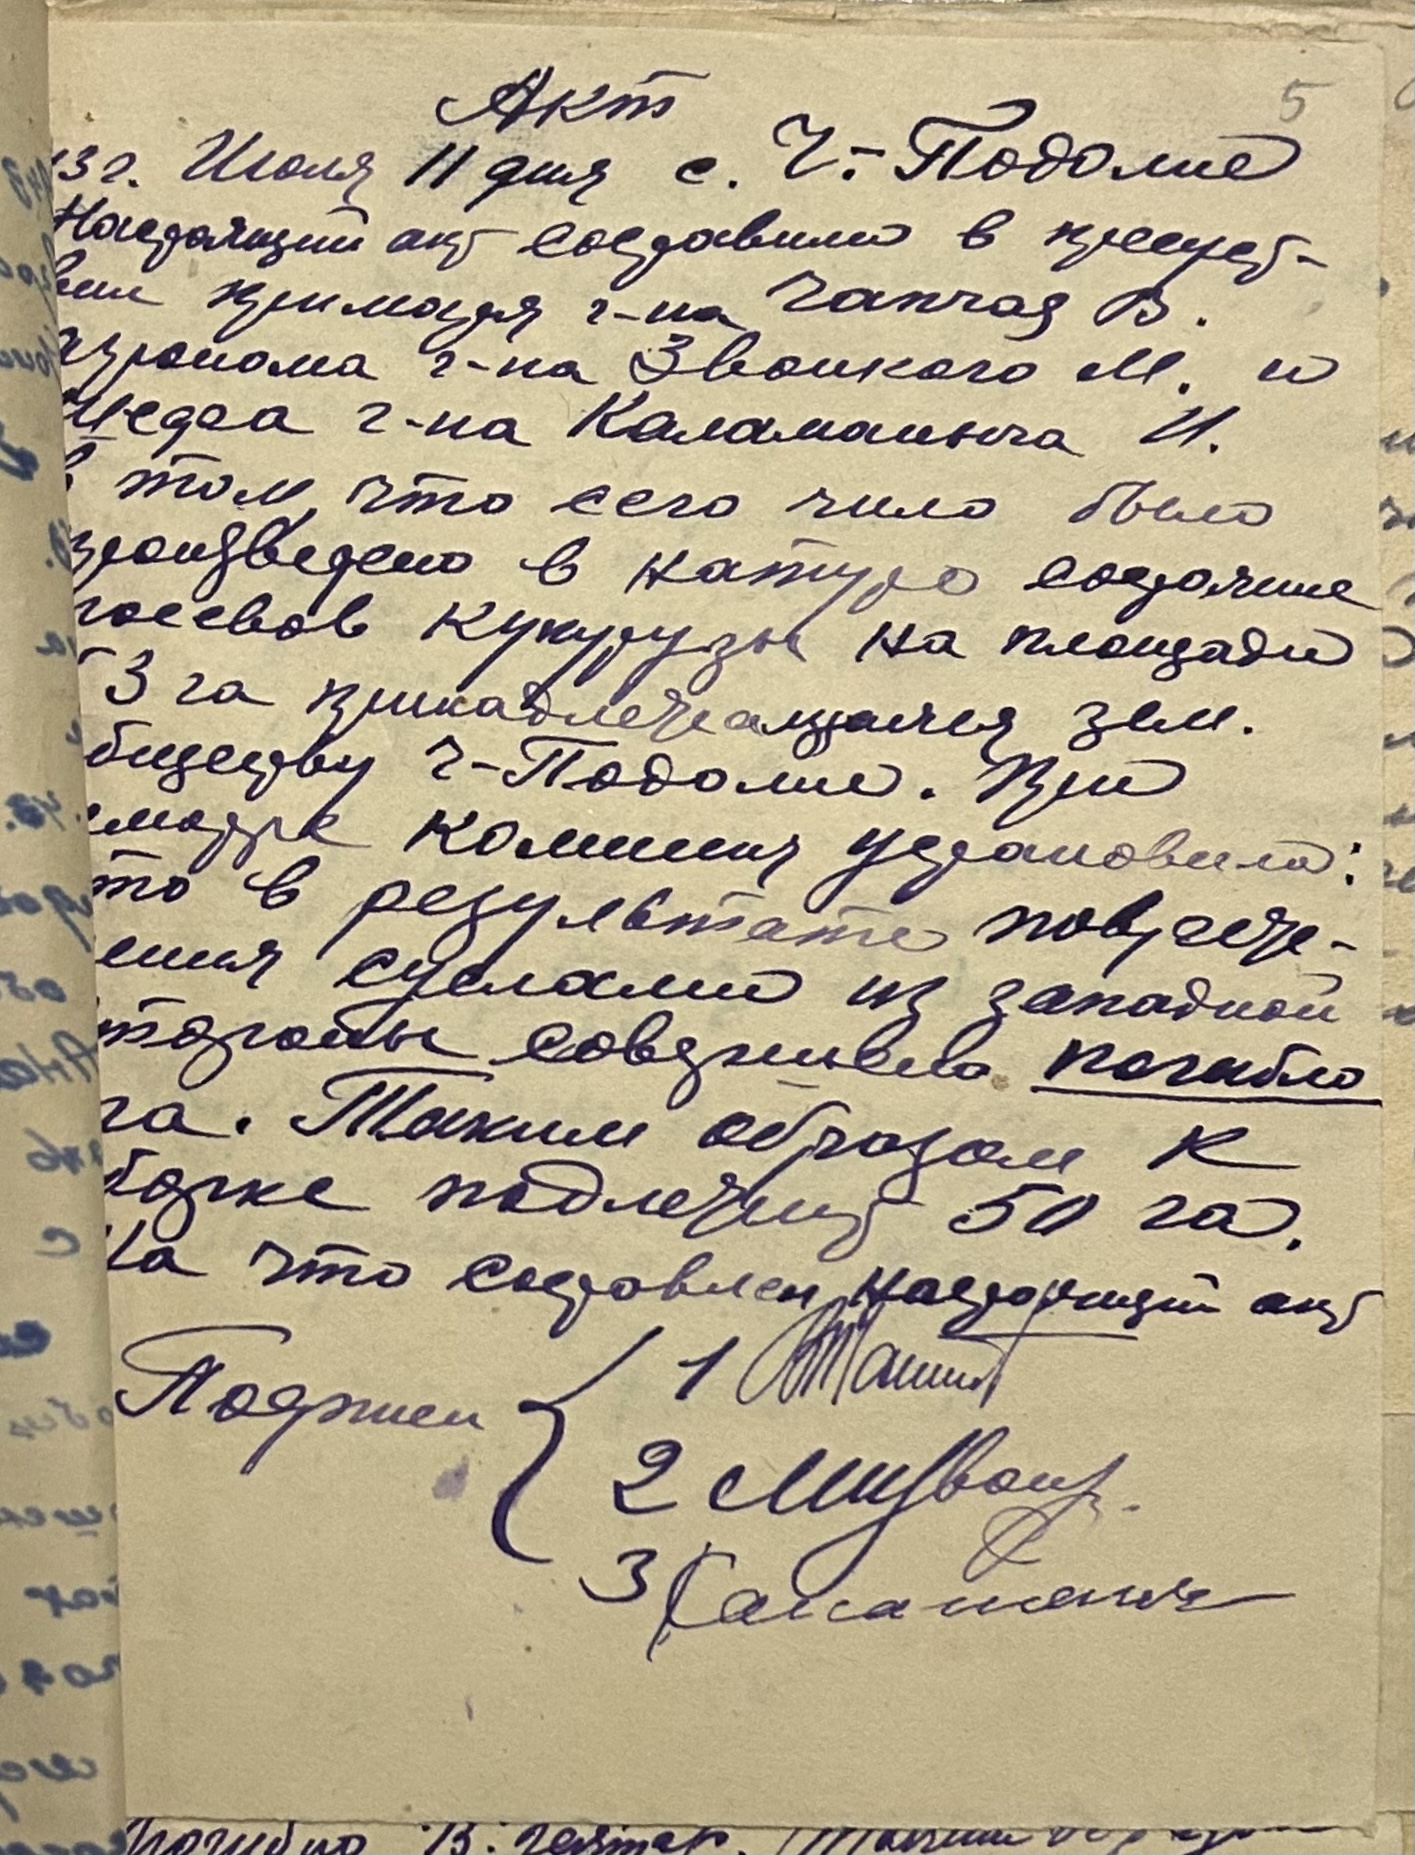 Акт
5
43 г. Июля 11 дня с. Ч.-Подолие
Настоящий акт составили в присутст-
вии примаря г-на Чапчая В.
агронома г-на Звонкого М. и
г-на Каламаныча И.
в том, что сего чило было
произведено в натуре состояние
посевов кукурузы на площади
63 га принадлежащаяся зем.
обществу Ч-Подолие. При
смотре комисия установила:
что в результате повреже-
ения суслами из западной
стороны совершенно погибло
га. Таким образом к
уборке подлежит 50 га.
На что составлен настоящий акт
Подписи { 1
2 МиЗвонк.
3 Каламаныч
погибло 13. гектар. Таким образом